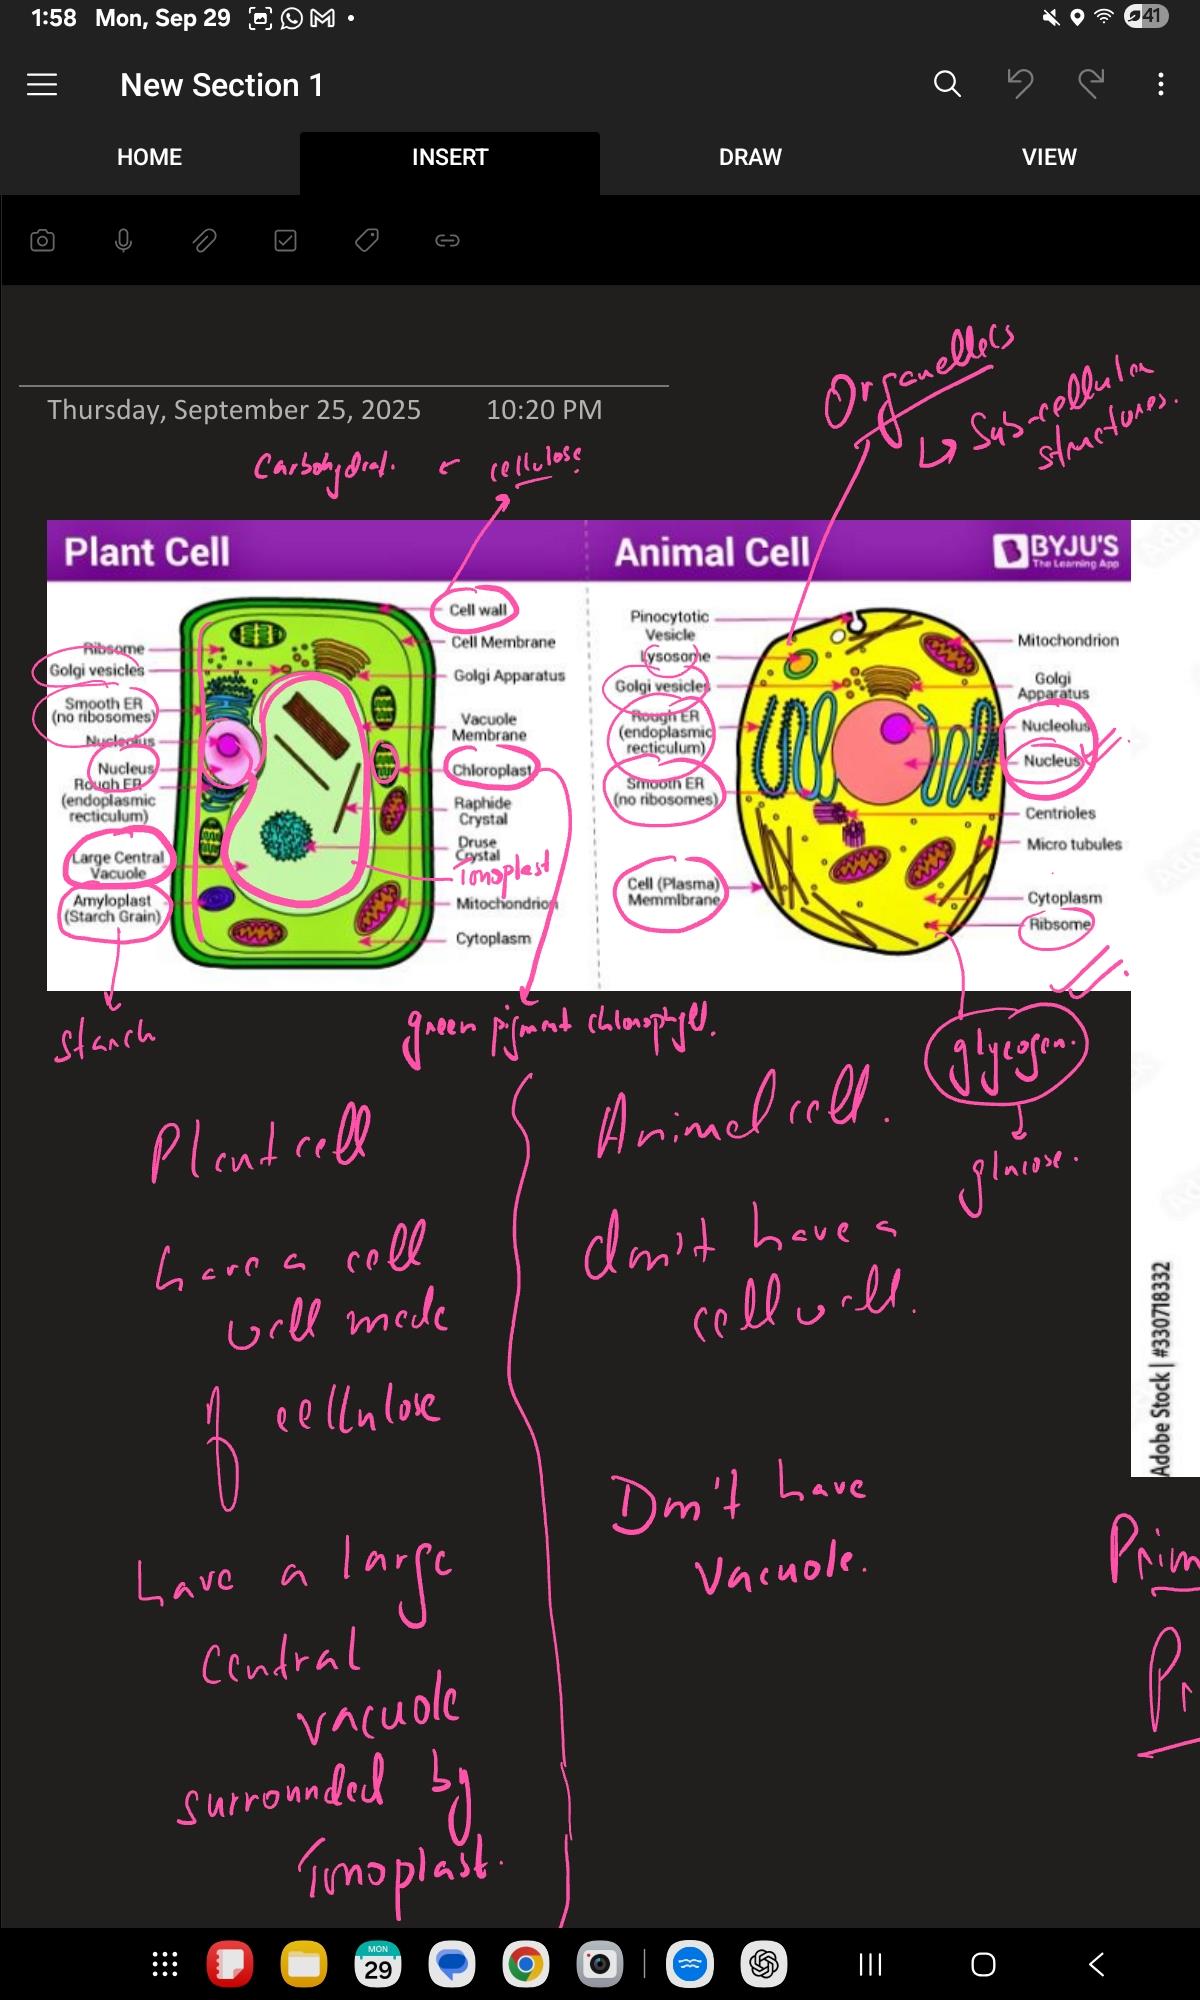 1:58 Mon, Sep 29
41
New Section 1
HOME INSERT DRAW VIEW
Organelles
Sub-cellular
structures.
Thursday, September 25, 2025 10:20 PM
Carbohydrat. ← cellulose
Plant Cell
Cell wall
Ribsome
Cell Membrane
Golgi vesicles
Golgi Apparatus
Smooth ER
(no ribosomes)
Vacuole
Membrane
Nucleolus
Nucleus
Chloroplast
Rough ER
(endoplasmic
recticulum)
Raphide
Crystal
Druse
Crystal
Large Central
Vacuole
Tonoplast
Amyloplast
(Starch Grain)
Mitochondrion
Cytoplasm
Animal Cell
BYJU'S
The Learning App
Pinocytotic
Vesicle
Mitochondrion
Lysosome
Golgi vesicles
Golgi
Apparatus
Rough ER
(endoplasmic
recticulum)
Nucleolus
Nucleus
Smooth ER
(no ribosomes)
Centrioles
Micro tubules
Cell (Plasma)
Memmlbrane
Cytoplasm
Ribsome
starch
green pigment chlorophyll.
glycogen.
glucose.
Plant cell
have a cell
wall made
of cellulose
have a large
central
vacuole
surrounded by
Tonoplast.
Animal cell.
don't have a
cell wall.
Don't have
vacuole.
Adobe Stock | #330718332
Prim
Pr
MON
29